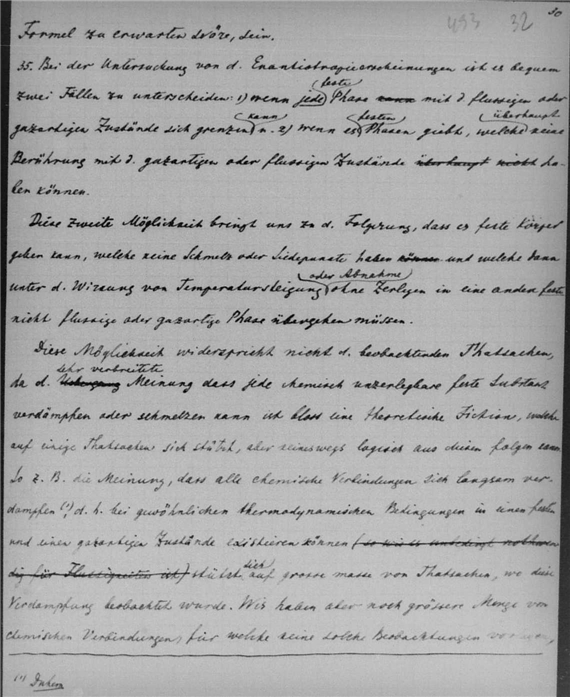 30
493 32
Formel zu erwarten wäre, sein.
35. Bei der Untersuchung von d. Enantiotropieerscheinungen ist es bequem
zwei Fällen zu unterscheiden: 1) wenn jede feste Phase kann mit d. flussigen oder
gazartigen Zustände sich grenzen kann u. 2) wenn es festen Phasen giebt, welche überhaupt keine
Berührung mit d. gazartigen oder flussigen Zustände überhaupt nicht ha-
ben können.
Diese zweite Möglichkeit bringt uns zu d. Folgerung, dass es feste Körper
geben kann, welche keine Schmelz oder Siedepunkte haben können und welche dann
unter d. Wirkung von Temperatursteigung oder Abnahme ohne Zerlegen in eine andere feste
nicht flussige oder gazartige Phase übergehen müssen.
Diese Möglichkeit widerspricht nicht d. beobachtenden Thatsachen,
da d. sehr verbreitete Meinung dass jede chemisch unzerlegbare feste Substanz
verdämpfen oder schmelzen kann ist bloss eine theoretische Fiction, welche
auf einige Thatsachen sich stützt, aber keineswegs logisch aus diesen folgen kann
So z. B. die Meinung, dass alle chemische Verbindungen sich langsam ver-
dampfen (1), d. h. bei gewöhnlichen thermodynamischen Bedingungen in einen festen
und einen gazartigen Zustände existieren können (so wie es unbedingt nothwen
dig für Flussigkeiten ist) stützt sich auf grosse masse von Thatsachen, wo diese
Verdampfung beobachtet wurde. Wir haben aber noch grössere Menge von
chemischen Verbindungen, für welche keine solche Beobachtungen vorliegen,
(1) Duhem